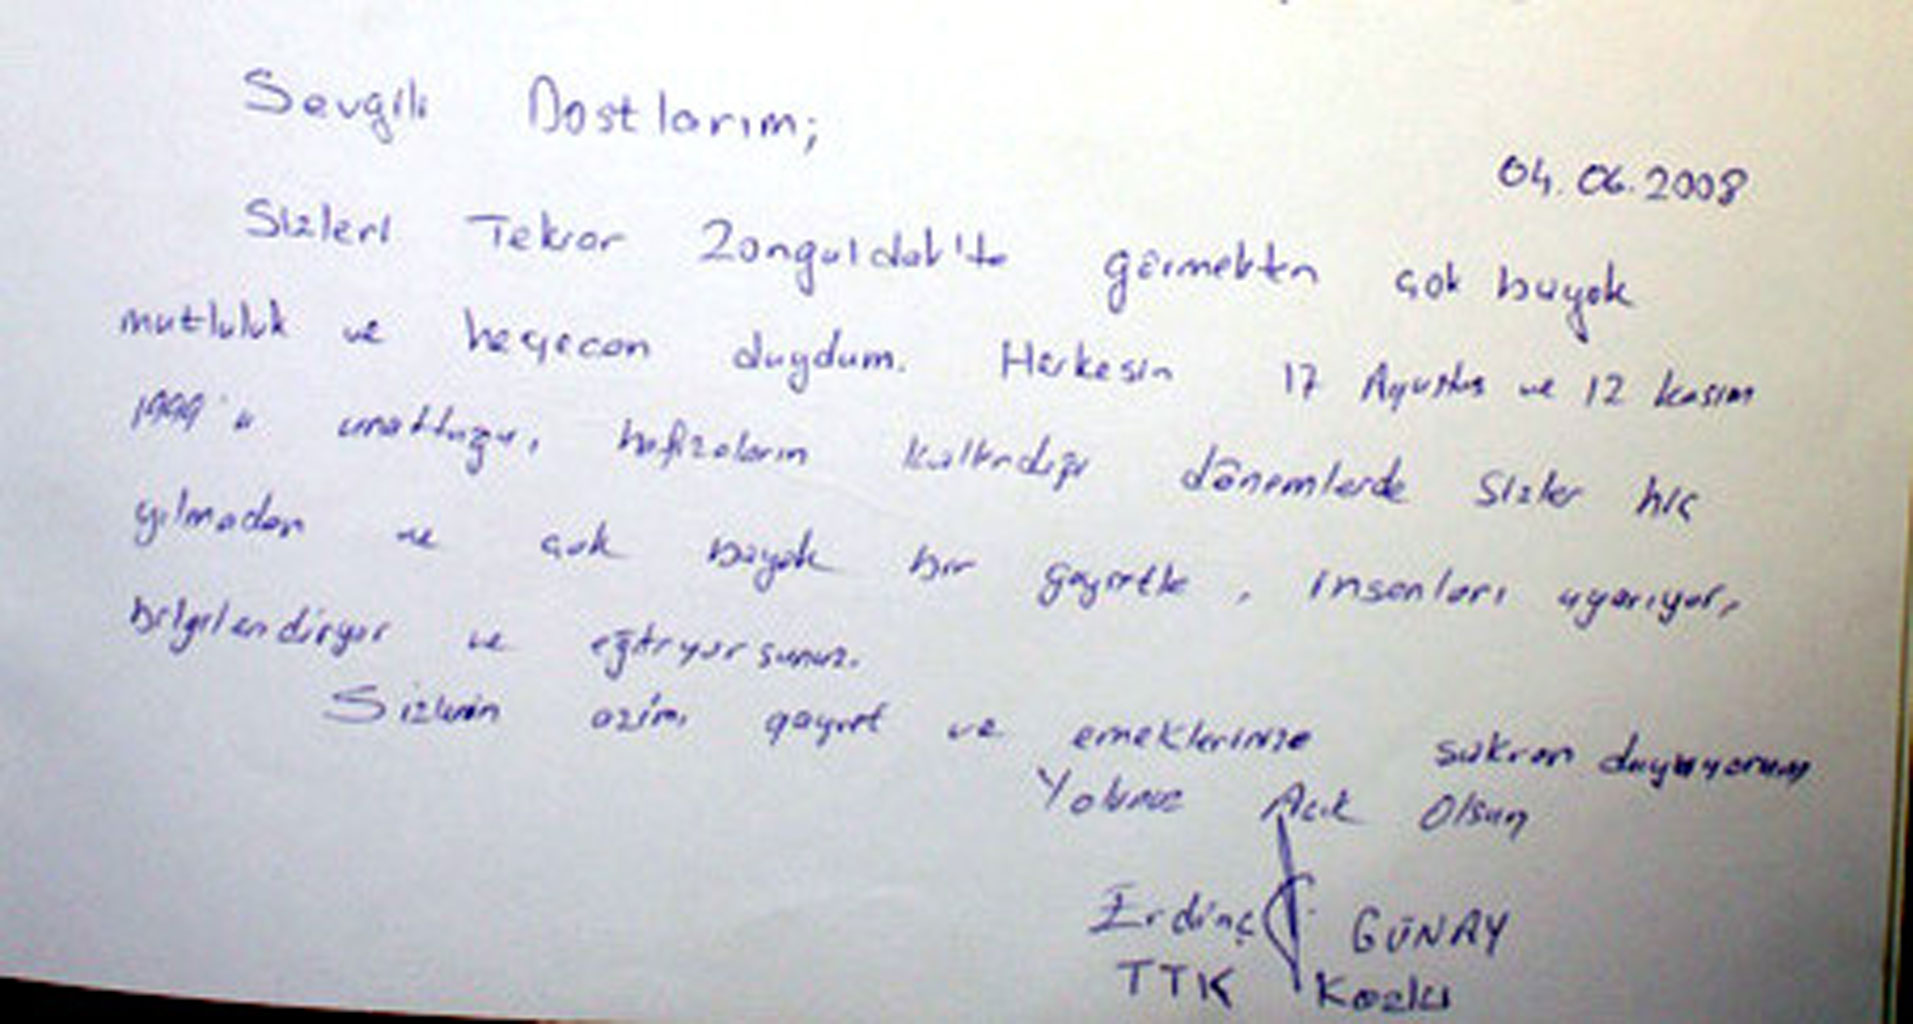 Sevgili Dostlarım;
04.06.2008
Sizleri Tekrar Zonguldak'ta görmekten çok büyük
mutluluk ve heyecan duydum. Herkesin 17 Ağustos ve 12 Kasım
1999'u unuttuğu, hafızaların küllendiği dönemlerde sizler hiç
yılmadan ve çok büyük bir gayretle, insanları uyarıyor,
bilgilendiriyor ve eğitiyorsunuz.
Sizlerin azim, gayret ve emeklerinize şükran duyuyorum
Yolunuz Açık Olsun
Erdinç GÜNAY
TTK Kozlu